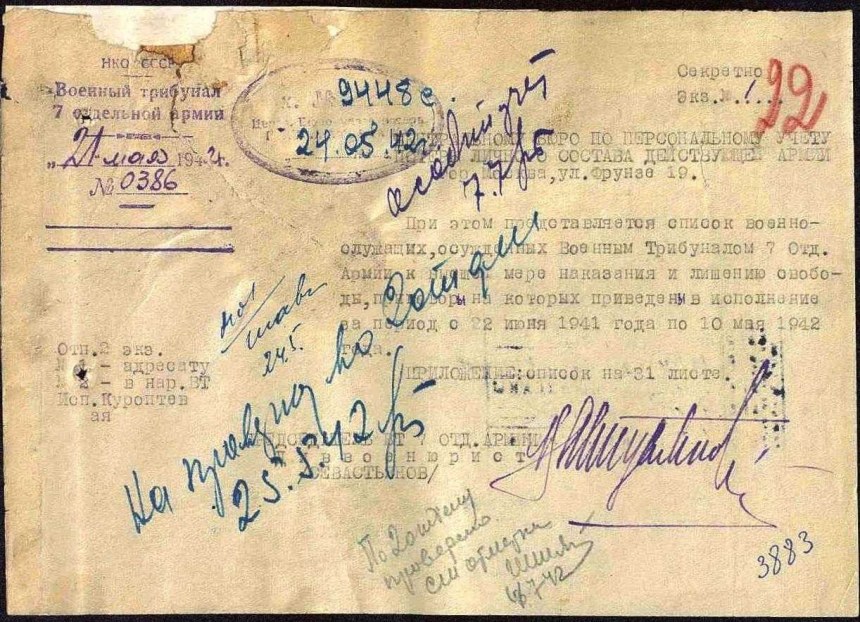 НКО СССР
Военный трибунал
7 отдельной армии
„21" мая 1942г.
№ 0386
9448с
24.05 42г
особый учёт
7.7
Секретно
Экз.№ 1...
22
БЮРО ПО ПЕРСОНАЛЬНОМУ УЧЕТУ
СОСТАВА ДЕЙСТВУЮЩЕЙ АРМИИ
Москва,ул.Фрунзе 19.
При этом представляется список военно-
служащих,осужденных Военным Трибуналом 7 Отд.
Армии к высшей мере наказания и лишению свобо-
ды,приговоры на которых приведены в исполнение
за период с 22 июня 1941 года по 10 мая 1942
года.
ПРИЛОЖЕНИЕ:список на 31 листе.
24.5.
На проверку по 2 отделу
25.5.42
Отп.2 экз.
№ 1 - адресату
№ 2 - в нар.ВТ
Исп.Куроптев
ая
ПРЕДСЕДАТЕЛЬ ВТ 7 ОТД.АРМИИ
военюрист
СЕВАСТЬЯНОВ/
По 2 отделу
проверено
см отметки
3883